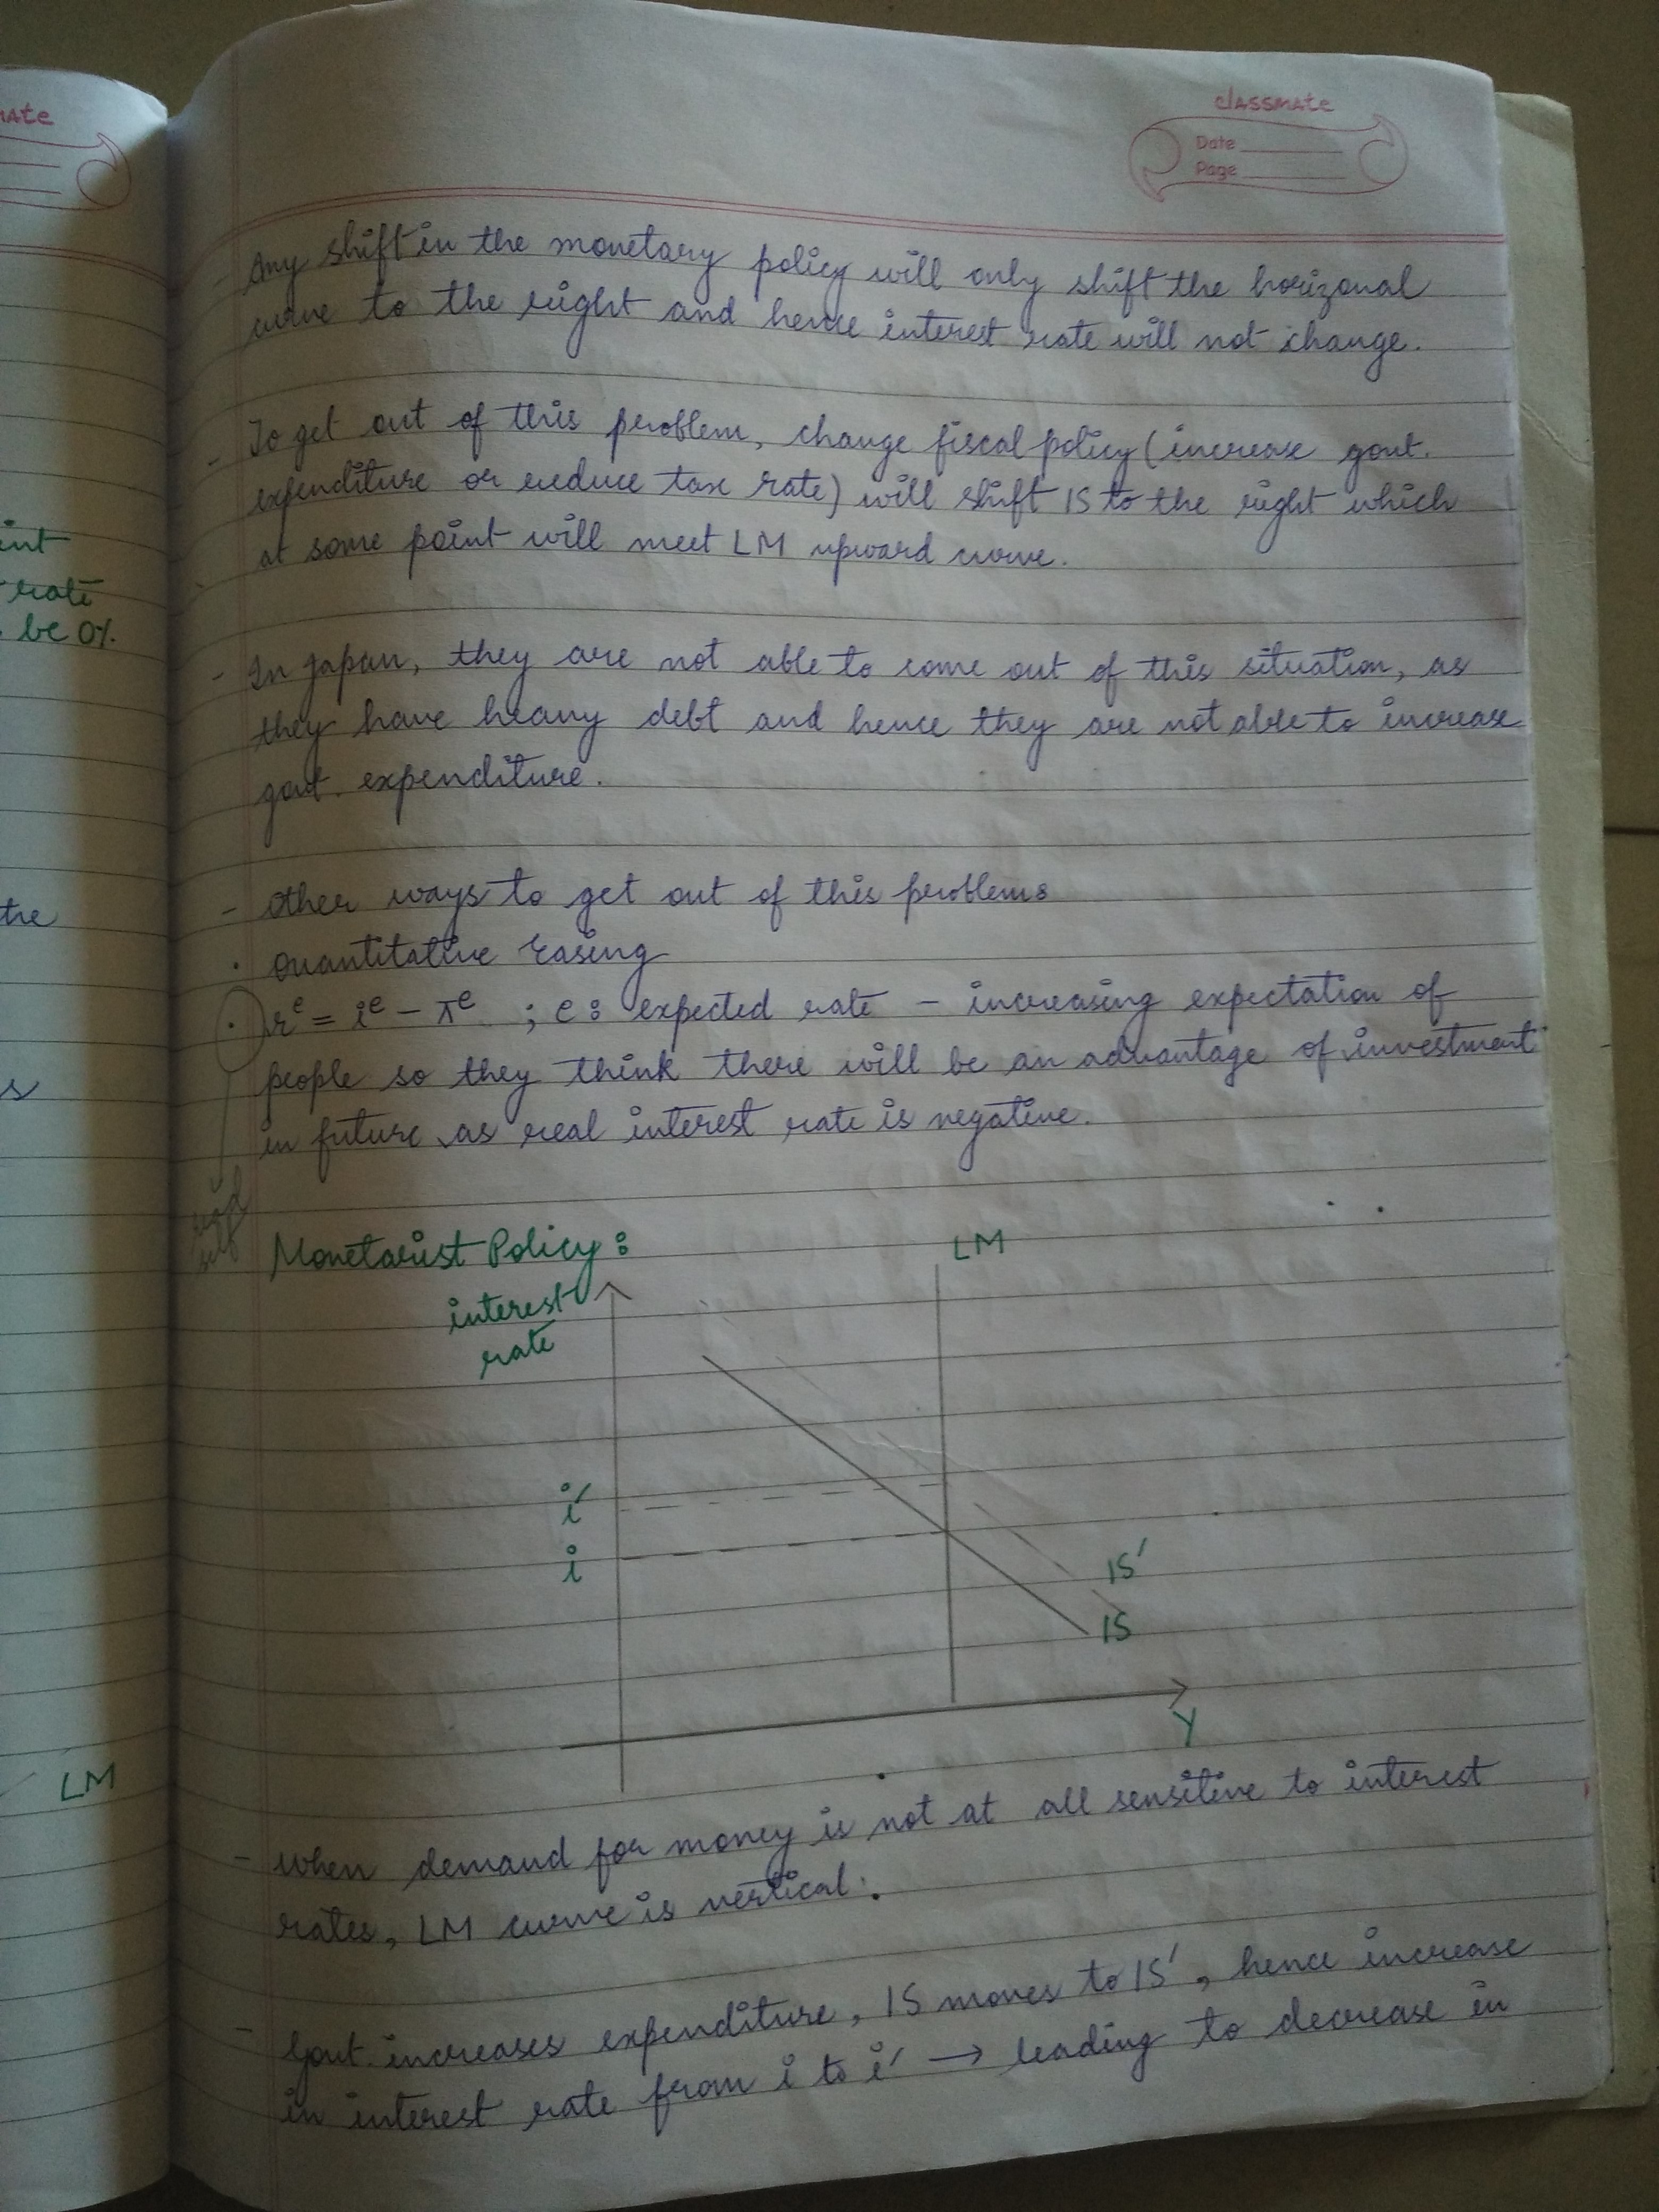 mate
int
rate
be 0%
the
s
LM
classmate
Date
Page
- Any shift in the monetary policy will only shift the horizonal
curve to the right and hence interest rate will not change.
- To get out of this problem, change fiscal policy (increase govt.
expenditure or reduce tax rate) will shift IS to the right which
at some point will meet LM upward curve.
- In Japan, they are not able to come out of this situation, as
they have heavy debt and hence they are not able to increase
govt. expenditure.
- Other ways to get out of this problems
· Quantitative Easing
· r^e = i^e - π^e ; e: expected rate - increasing expectation of
people so they think there will be an advantage of investment
in future as real interest rate is negative.
self
Monetarist Policy:
LM
interest
rate
i'
i
IS'
IS
Y
- when demand for money is not at all sensitive to interest
rates, LM curve is vertical.
- Govt. increases expenditure, IS moves to IS', hence increase
in interest rate from i to i' → leading to decrease in